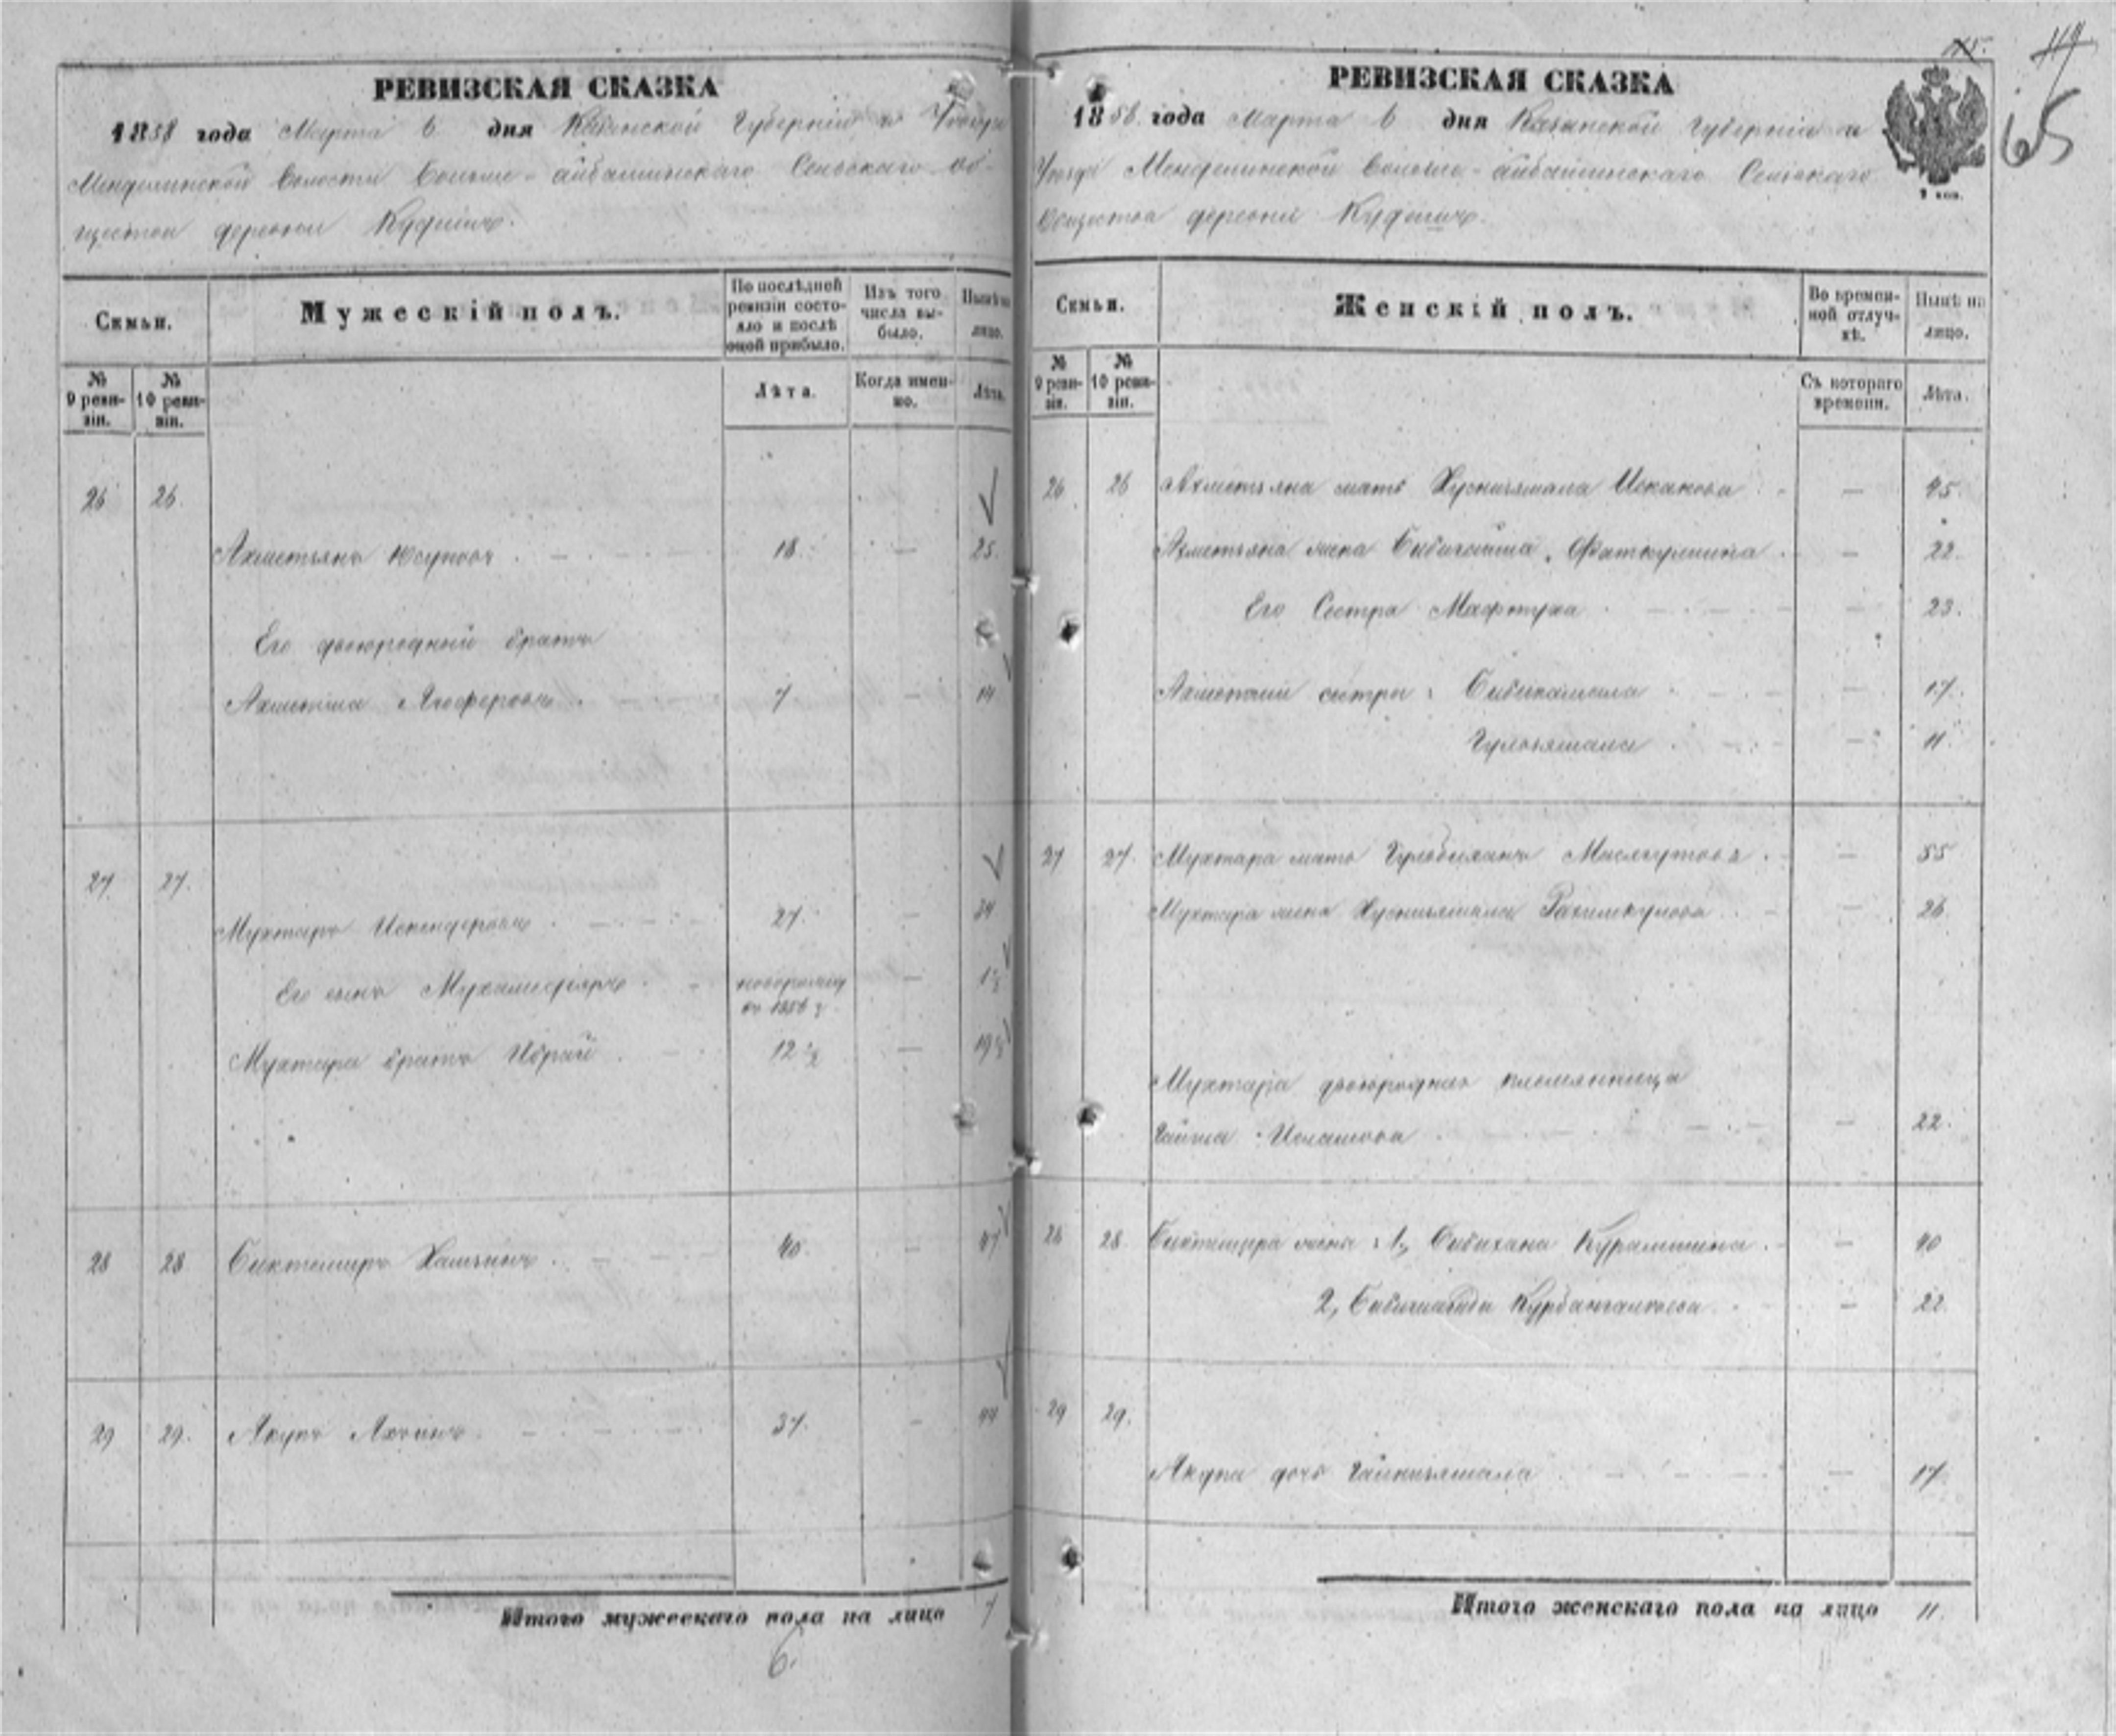 РЕВИЗСКАЯ СКАЗКА
1858 года Марта 6 дня Казанской Губерніи и Уѣзда
Менделинской волости Больше-айбашинскаго Сельскаго об-
щества деревни
Семьи.
Мужескій полъ.
По послѣдней ревизіи состо-яло и послѣ оной прибыло.
Изъ того числа вы-было.
Нынѣ на лицо.
№ 9 реви-зіи.
№ 10 реви-зіи.
Лѣта.
Когда имен-но.
Лѣта.
26 26.
Ахметьянъ Юсуповъ 18. — 25.
Его двоюродный братъ
Ахметша 7 — 14
27. 27.
Мухтаръ Искендеровъ 27. — 34
Его сынъ Мухамедьяръ новорожд — 1½
въ 1856 г.
Мухтара братъ Ибрай 12½ — 19½
28 28 Биктемиръ 40. — 47
29 29. Якупъ 37. — 44
Итого мужескаго пола на лицо 7
6.
РЕВИЗСКАЯ СКАЗКА
1858 года Марта 6 дня Казанской Губерніи и
Уѣзда Менделинской волости Больше-айбашинскаго Сельскаго
Общества деревни
65
Семьи.
Женскій полъ.
Во времен-ной отлуч-кѣ.
Нынѣ на лицо.
№ 9 реви-зіи.
№ 10 реви-зіи.
Съ котораго времени.
Лѣта.
26 26 Ахметьяна мать Хуснизямала — 45.
Ахметьяна жена Бибигайша Фаткуллина — 22.
Его Сестра Мафтуха — 23.
Ахметши сестры: Бибикамала — 17.
Гульзямала — 11.
27 27. Мухтара мать Гульбиханъ Масягутова — 55
Мухтара жена Хуснизямала Рахимкулова — 26.
Мухтара двоюродная племянница
Гайша — 22.
28 28. Биктемира жены: 1, Бибихана Курамшина — 40
2, Курбангалеева — 22.
29 29.
Якупа дочь Гайнизямала — 17.
Итого женскаго пола на лицо 11.